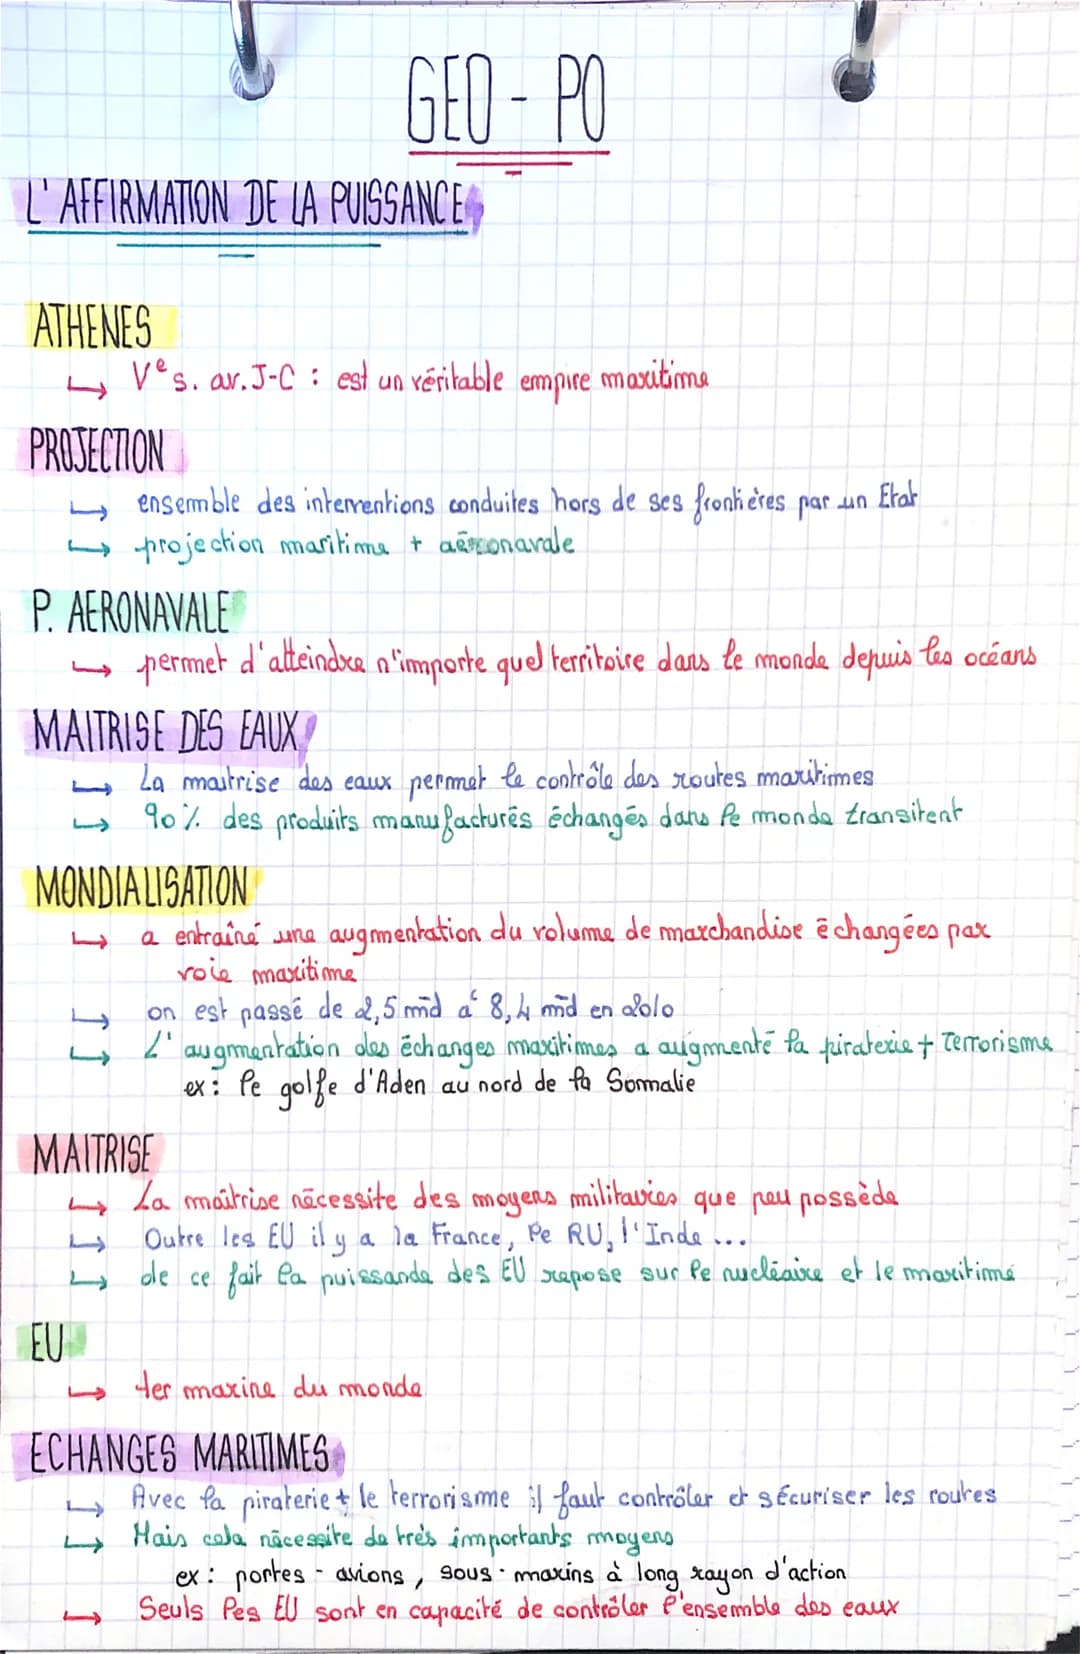 GEO - PO
L'AFFIRMATION DE LA PUISSANCE
ATHENES
↳ Vᵉ s. av. J-C : est un véritable empire maritime
PROJECTION
↳ ensemble des interventions conduites hors de ses frontières par un Etat
↳ projection maritime + aéronavale
P. AERONAVALE
↳ permet d'atteindre n'importe quel territoire dans le monde depuis les océans
MAITRISE DES EAUX
↳ La maitrise des eaux permet le contrôle des routes maritimes
↳ 90% des produits manufacturés échangés dans le monde transitent
MONDIALISATION
↳ a entraîné une augmentation du volume de marchandise échangées par
voie maritime
↳ on est passé de 2,5 md à 8,4 md en 2010
↳ L'augmentation des échanges maritimes a augmenté la piraterie + Terrorisme
ex : le golfe d'Aden au nord de la Somalie
MAITRISE
↳ La maîtrise nécessite des moyens militaires que peu possède
↳ Outre les EU il y a la France, le RU, l'Inde ...
↳ de ce fait la puissande des EU repose sur le nucléaire et le maritime
EU
↳ 1er marine du monde
ECHANGES MARITIMES
↳ Avec la piraterie + le terrorisme il faut contrôler et sécuriser les routes
↳ Mais cela nécessite de très importants moyens
ex : portes - avions, sous - marins à long rayon d'action
↳ Seuls les EU sont en capacité de contrôler l'ensemble des eaux